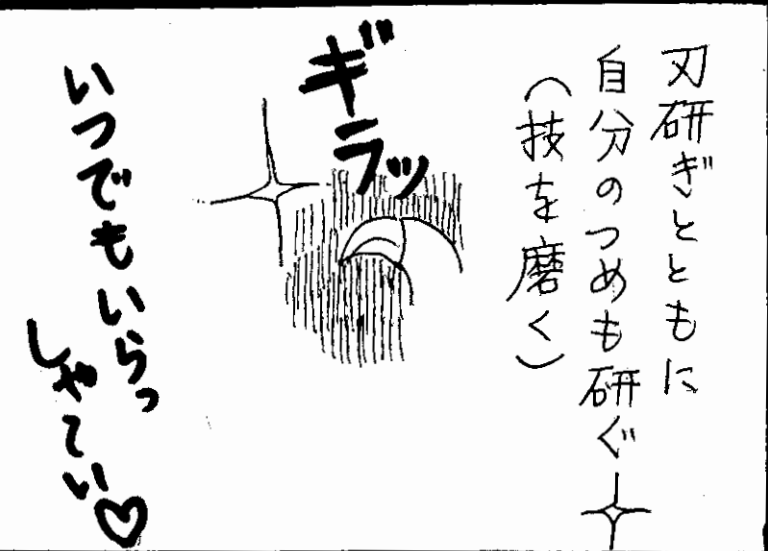 刃研ぎとともに
自分のつめも研ぐ
(技を磨く)
ギラッ
いつでもいらっ
しゃてい♡